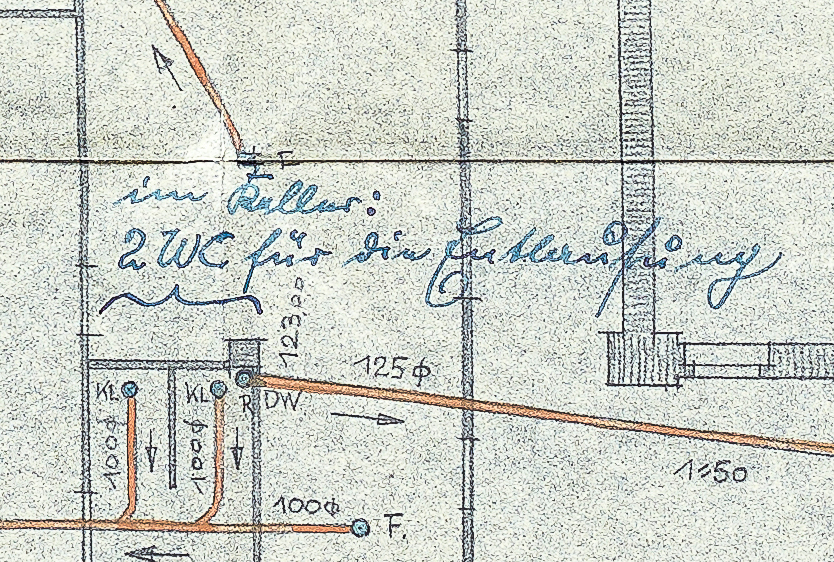 im Keller:
2 WC für die Entlausung
123,00
125⌀
KL
KL
R
DW
100⌀
100⌀
1:50
100⌀
F.